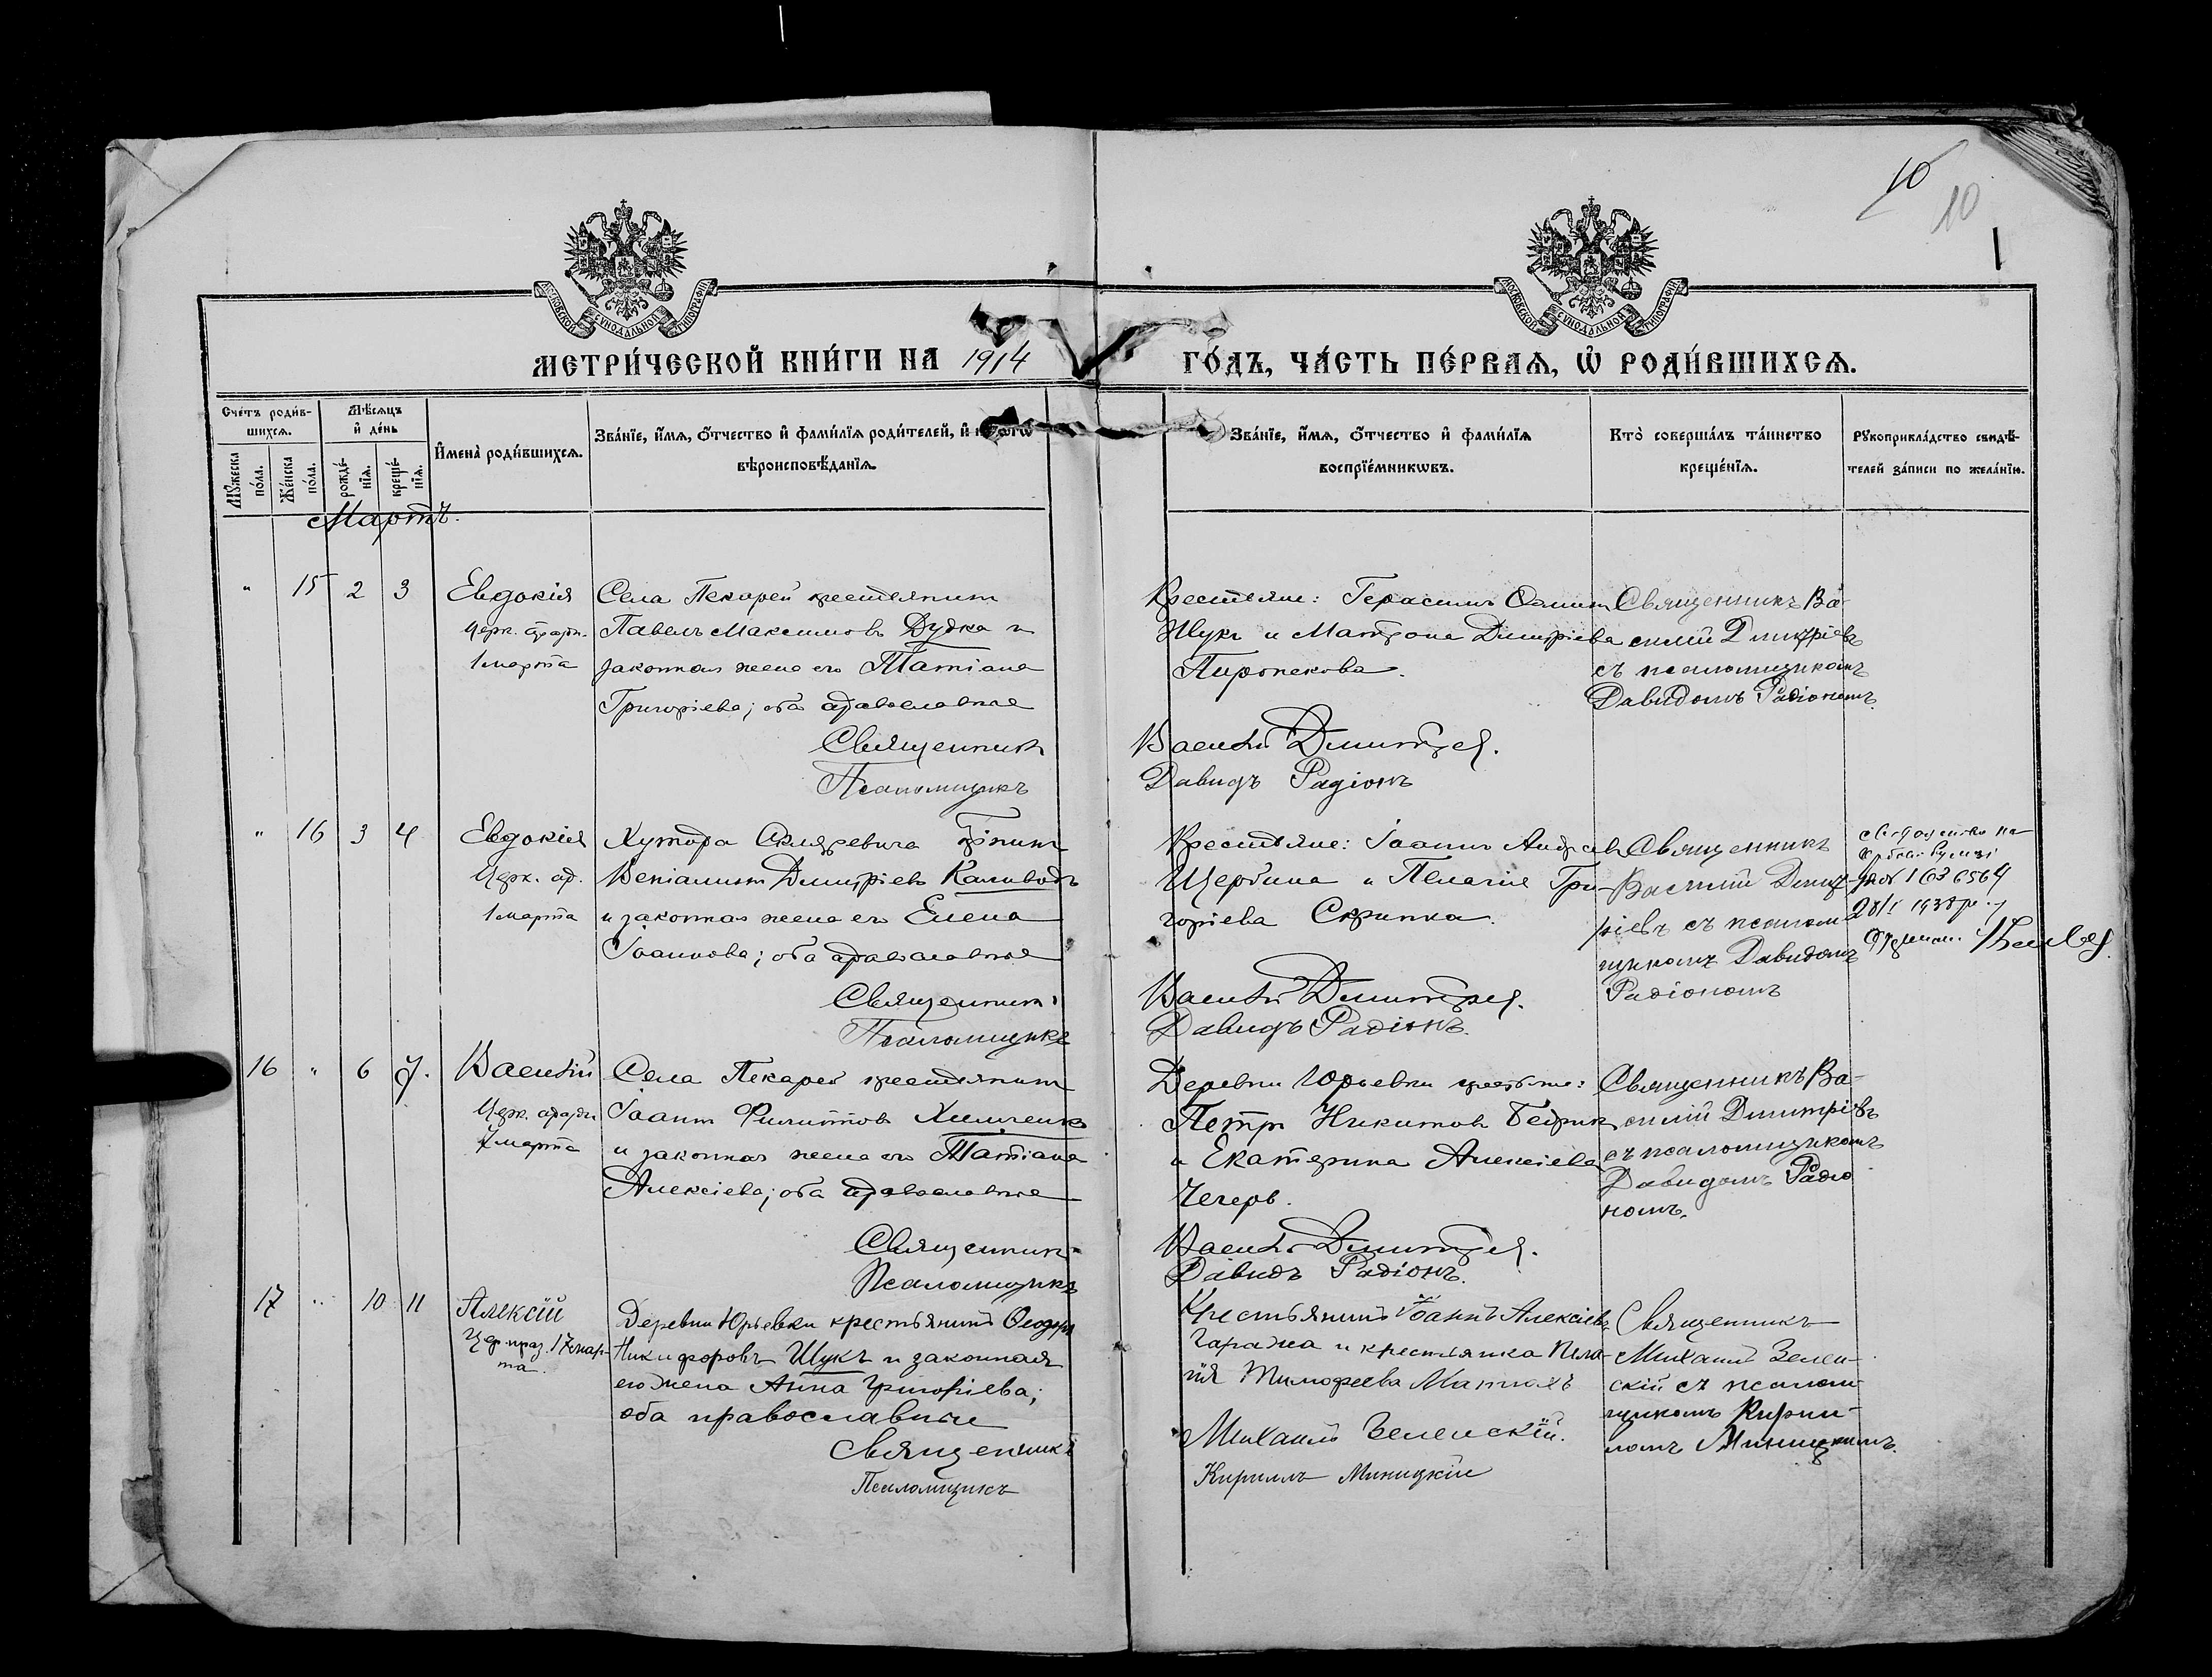 10
10
МОСКОВСКОЙ СѴНОДАЛЬНОЙ ТИПОГРАФІИ
МОСКОВСКОЙ СѴНОДАЛЬНОЙ ТИПОГРАФІИ
МЕТРИ́ЧЕСКОЙ КНИ́ГИ НА 1914 ГО́ДЪ, ЧА́СТЬ ПЕ́РВАѦ, Ѡ҆ РОДИ́ВШИХСѦ.
Сче́тъ роди́в-
шихсѧ.
Мꙋ́жеска по́ла.
Же́нска по́ла.
Мѣ́сѧцъ и҆ де́нь
рожде́-нїѧ.
креще́-нїѧ.
И҆мена̀ роди́вшихсѧ.
Зва́нїе, и҆́мѧ, ѻ҆́тчество и҆ фами́лїѧ роди́телей, и҆
вѣроисповѣ́данїѧ.
Зва́нїе, и҆́мѧ, ѻ҆́тчество и҆ фами́лїѧ
воспрїе́мникѡвъ.
Кто̀ соверша́лъ та́инство
креще́нїѧ.
Рꙋкоприкла́дство свидѣ́-
телей за́писи по жела́нїю.
Мартъ.
" 15 2 3
Евдокія
Церк. праздн.
1 марта
Села Пекарей крестьянинъ
Павелъ Максимовъ Дудка и
законная жена его Татіана
Григоріева; оба православные
Священникъ
Псаломщикъ
Крестьяне: Герасимъ
Щукъ и Матрона Димитріева
Пиропекова.
Василій Димитріев.
Давидъ Радіонъ
Священникъ Ва-
силій Димитріевъ
съ псаломщикомъ
Давидомъ Радіономъ.
" 16 3 4
Евдокія
Церк. пр.
1 марта
Хутора
Веніаминъ Димитріевъ Каливодъ
и законная жена его Елена
Іоаннова; оба православные
Священникъ
Псаломщикъ
Крестьяне: Іоаннъ Андреевъ
Щербина и Пелагія Гри-
горіева Скрипка.
Василій Димитріев.
Давидъ Радіонъ.
Священникъ
Василій Димит-
ріевъ съ псалом
щикомъ Давидомъ
Радіономъ
1636564
28/I 1938р.
16 " 6 7.
Василій
Церк. праздн.
7 марта
Села Пекарей крестьянинъ
Іоаннъ Филипповъ Химченко
и законная жена его Татіана
Алексіева; оба православные
Священникъ
Псаломщикъ
Деревни Юрьевки крестьяне:
Петръ Никитовъ Бедрикъ
и Екатерина Алексіева
Чечеръ.
Василій Димитріев.
Давидъ Радіонъ.
Священникъ Ва-
силій Димитріевъ
съ псаломщикомъ
Давидомъ Радіо
номъ.
17 " 10 11
Алексій
Цер. праз. 17 мар-
та.
Деревни Юрьевки крестьянинъ Ѳеодоръ
Никифоровъ Щукъ и законная
его жена Анна Григоріева;
оба православные
Священникъ
Псаломщикъ
Крестьянинъ Іоаннъ Алексіевъ
Гаража и крестьянка Пела-
гія Тимофеева
Михаилъ Зеленскій.
Кириллъ Миницкій
Священникъ
Михаилъ Зелен-
скій съ псалом-
щикомъ Кирил-
ломъ Миницкимъ.